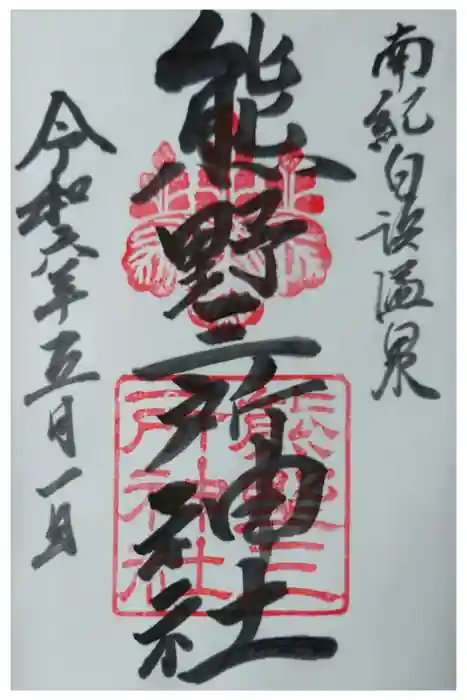 南紀白浜温泉
熊野三所神社
熊野三
所神社
令和六年五月一日